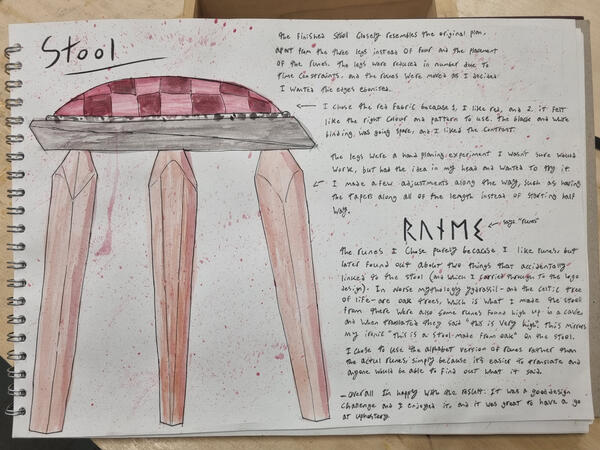 Stool
the finished stool closely resembles the original plan,
apart from the three legs instead of four and the placement
of the runes. The legs were reduced in number due to
time constraints, and the runes were moved as I decided
I wanted the edges ebonised.
I chose the red fabric because 1, I like red, and 2. it felt
like the right colour and pattern to use. The black and white
binding, was going spare, and I liked the contrast.
the legs were a hand planing experiment I wasn't sure would
work, but had the idea in my head and wanted to try it.
I made a few adjustments along the way, such as having
the tapers along all of the length instead of starting half
way.
ᚱᚢᚾᛖᛊ says "runes"
the runes I chose purely because I like runes, but
later found out about two things that accidentally
linked to the stool (and which I carried through to the logo
design). In norse mythology yggdrassil - and the celtic tree
of life - are oak trees, which is what I made the stool
from. There were also some runes found high up in a cave
and when translated they said "this is very high". This mirrors
my ironic "this is a stool - made from oak" on the stool.
I chose to use the alphabet version of runes rather than
the actual runes, simply because it's easier to translate and
anyone would be able to find out what it said.
- Overall im happy with the result. It was a good design
challenge and I enjoyed it, and it was great to have a go
at upholstery.